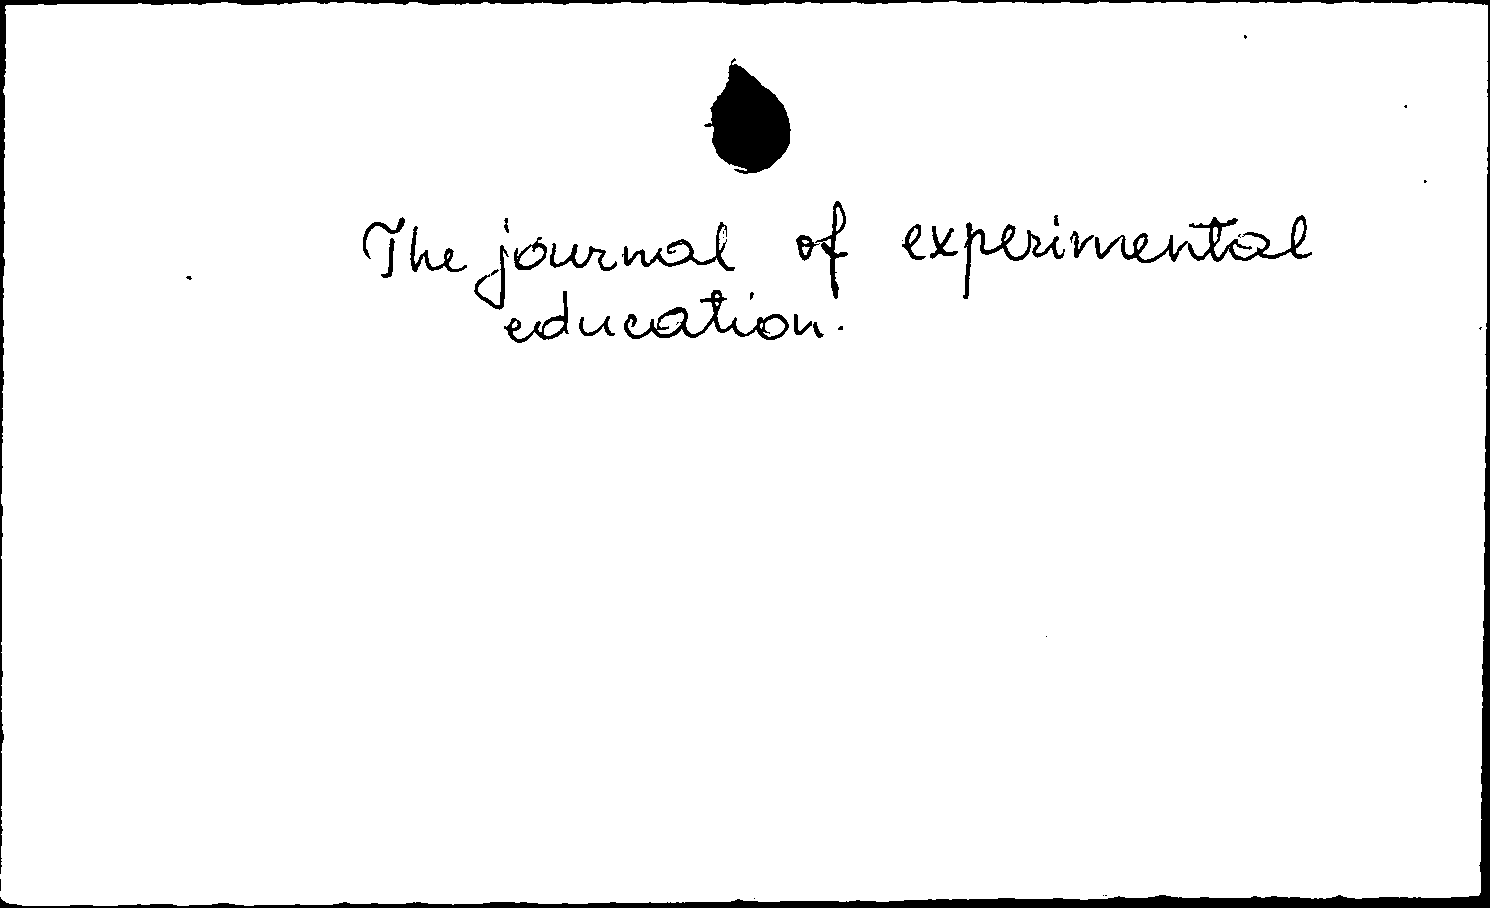 The journal of experimental
education.